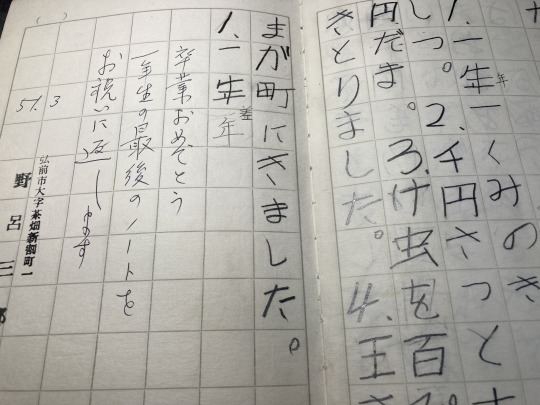 1.一年一くみのき
年
しつ。2.千円さつと
円だま。3.け虫を百
きとりました。4.王
まが町にきました。
1.一年
年
卒業おめでとう
一年生の最後のノートを
お祝いに返します
51.3
弘前市大字茶畑新割町一
野呂三